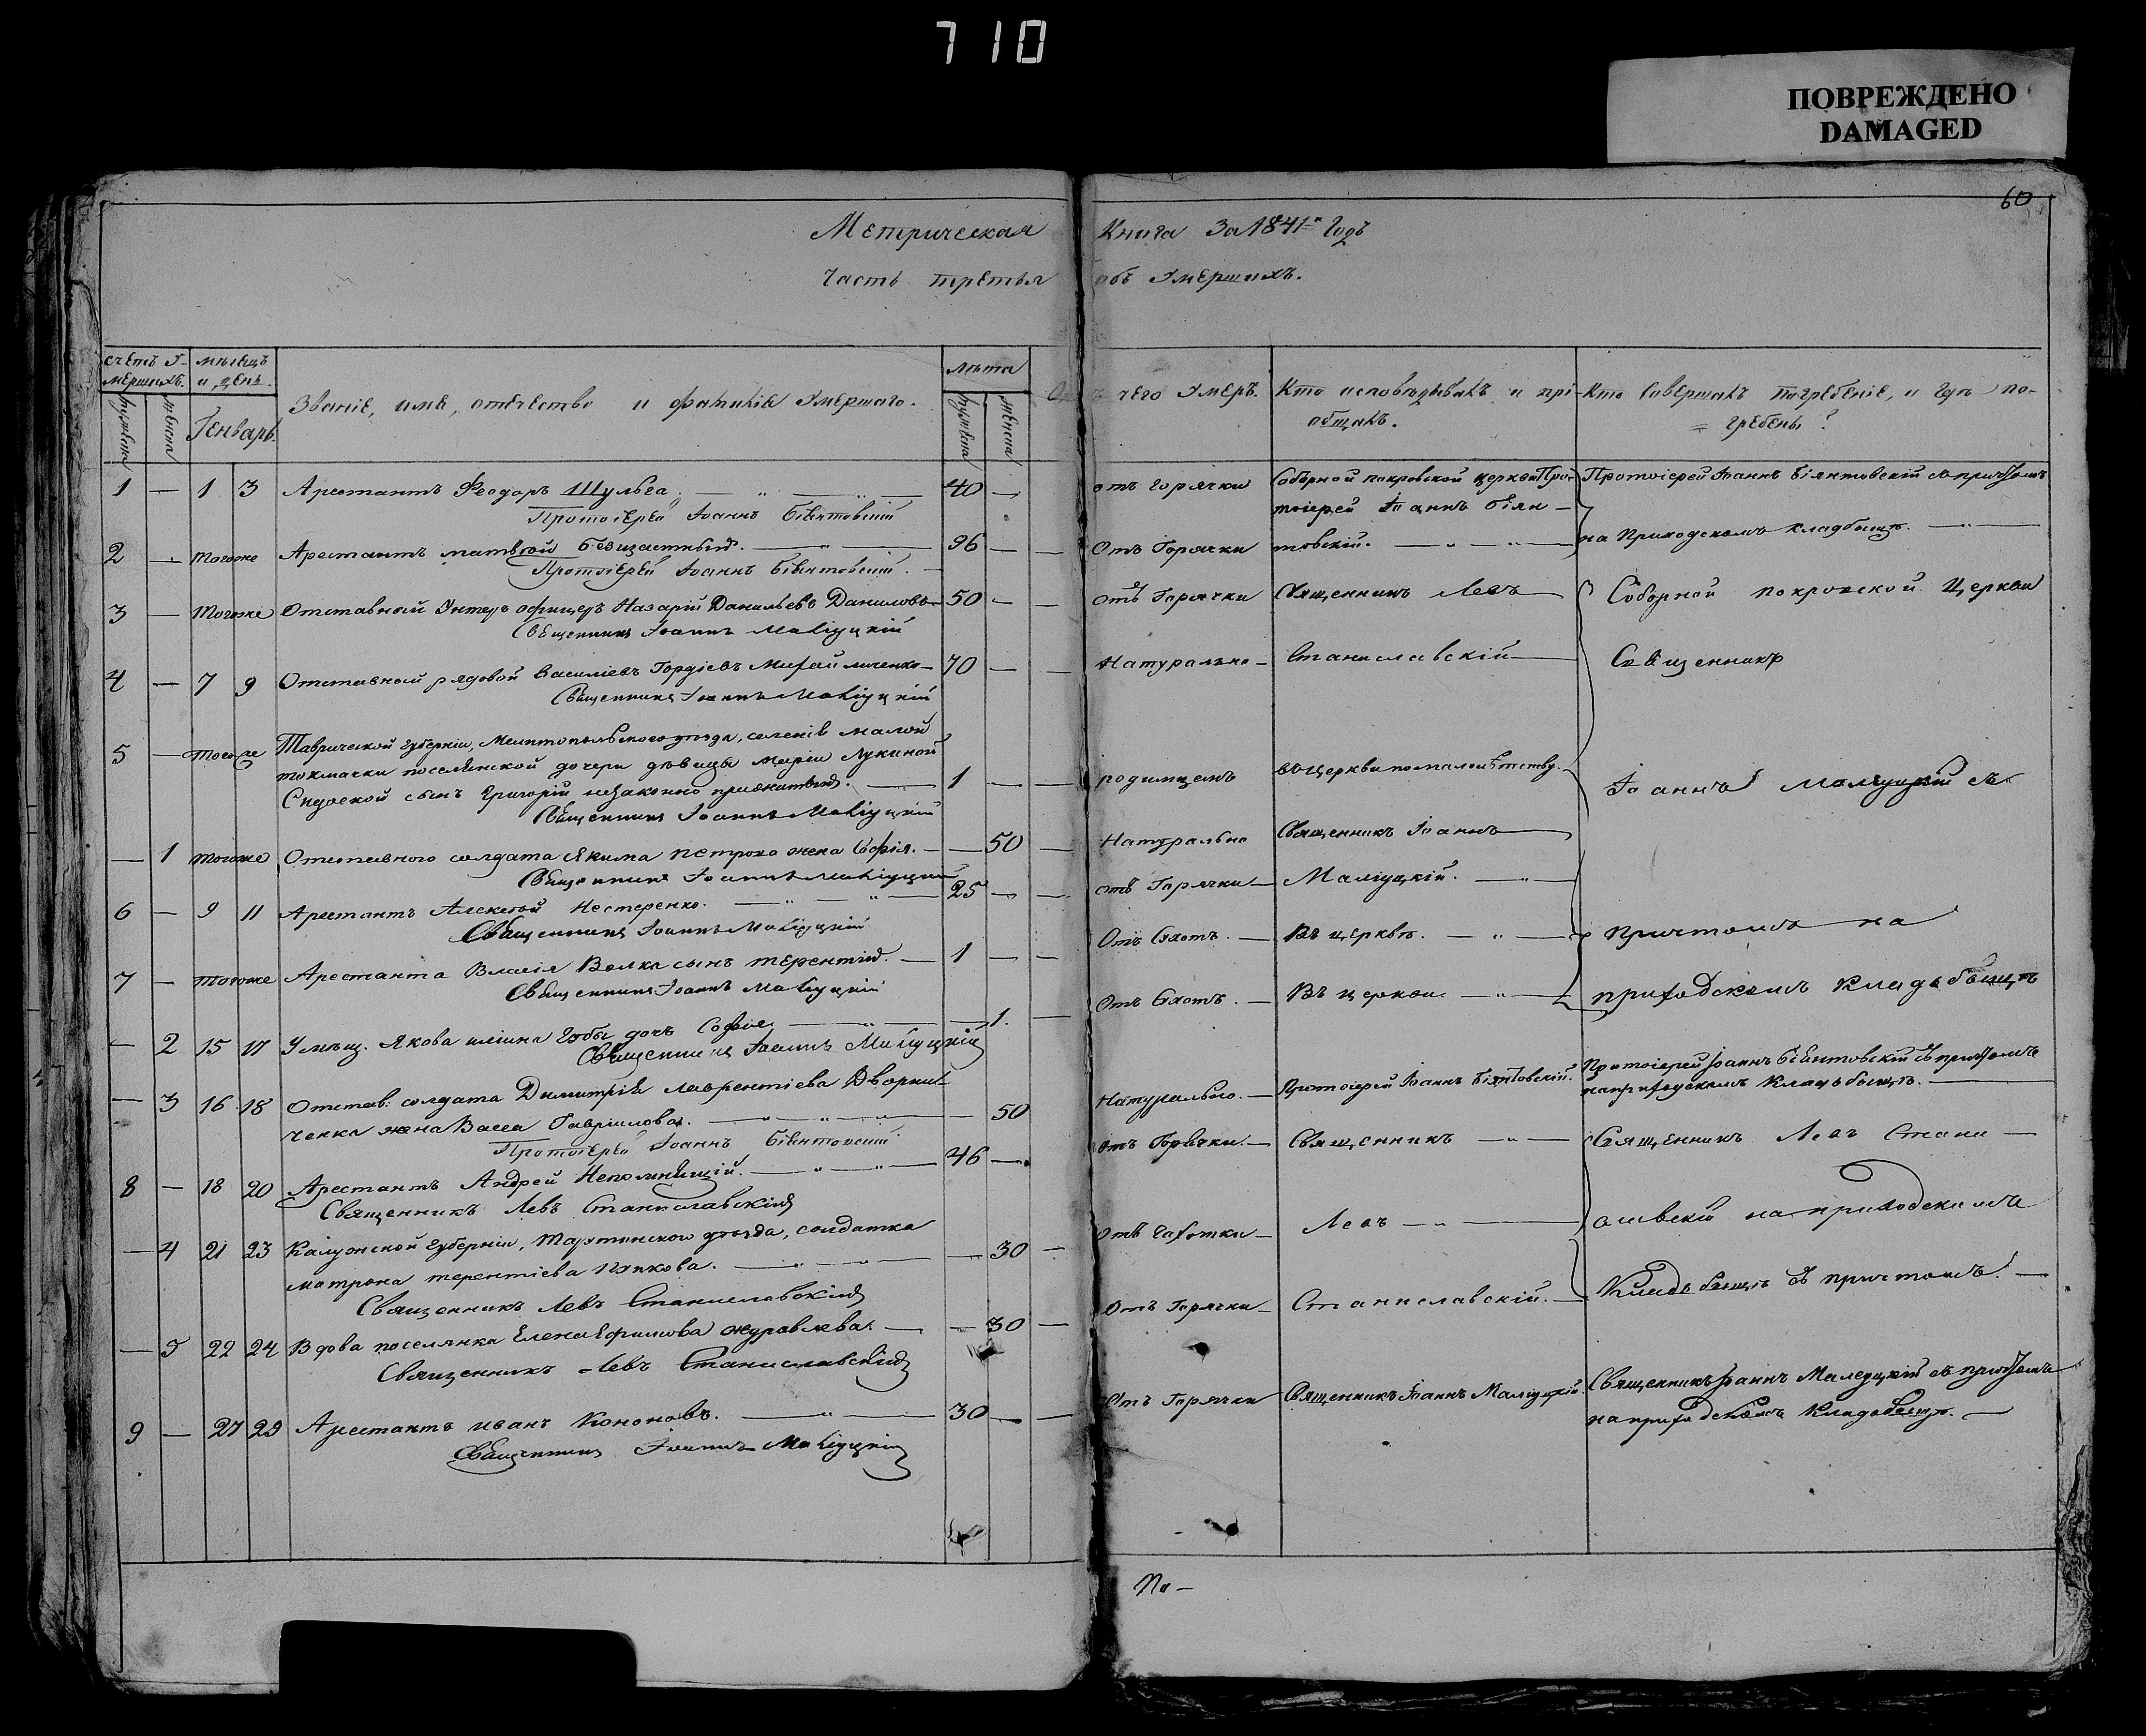 710
ПОВРЕЖДЕНО
DAMAGED
60
Метрическая Книга За 1841й Годъ
Часть третья объ Умершихъ.
Счетъ У-
мершихъ.
мѣсяцъ
и день.
Генварь.
Званіе, имя, отечество и фамилія Умершаго.
Лѣта
Отъ чего Умеръ.
Кто исповѣдывалъ и прі-
общалъ.
Кто Совершалъ погребеніе, и гдѣ по-
гребены?
1 — 1 3 Арестантъ Феодоръ Шульга. 40 —
Протоіерей Іоаннъ Біянтовскій
2 — тогоже Арестантъ матвѣй Безщастный. 96 —
Протоіерей Іоаннъ Біянтовскій.
3 — тогоже Отставный Унтеръ офицеръ Назарій Данильевъ Даниловъ 50 —
Священникъ Іоаннъ Маліуцкій
4 — 7 9 Отставный рядовой Василіевъ Гордіевъ Михайличенко 70 —
Священникъ Іоаннъ Маліуцкій
5 — тогоже Таврической губерніи, Мелитопольского уезда, селенія малой
токмачки поселянской дочери дѣвицы Маріи Лукиной
сынъ Григорій незаконно прижитый. 1 —
Священникъ Іоаннъ Маліуцкій
— 1 тогоже Отставного солдата Якима Петрова жена Софія. — 50
Священникъ Іоаннъ Маліуцкій
6 — 9 11 Арестантъ Алексѣй Нестеренко. 25 —
Священникъ Іоаннъ Маліуцкій
7 — тогоже Арестанта Власія Волка сынъ терентій. 1 —
Священникъ Іоаннъ Маліуцкій
— 2 15 17 Умѣщ. Якова дочь Софія — 1.
Священникъ Іоаннъ Маліуцкій
— 3 16 18 Отстав. солдата Димитрія Лаврентіева Дворни-
ченка жена Васса Гавріилова. — 50
Протоіерей Іоаннъ Біянтовскій.
8 — 18 20 Арестантъ Андрей Непомнящій. 46 —
Священникъ Левъ Станиславскій
— 4 21 23 Калужской губерніи, уезда, солдатка
матрона терентіева — 30
Священникъ Левъ Станиславскій
— 5 22 24 Вдова поселянка Елена Ефимова журавлева. — 30
Священникъ Левъ Станиславскій
9 — 27 29 Арестантъ иванъ Кононовъ. 30 —
Священникъ Іоаннъ Маліуцкій
отъ горячки
Отъ Горячки
отъ Горячки
Натурально
родимцемъ
Натурально
отъ Горячки
Отъ
Отъ
Натурально.
отъ Горячки.
отъ чахотки
Отъ Горячки
Отъ Горячки
Соборной покровской церкви Про-
тоіерей Іоаннъ Біян-
товскій.
Священникъ Левъ
Станиславскій
въ церкви помалолѣтству.
Священникъ Іоаннъ
Маліуцкій.
Въ церквѣ.
Въ церкви
Протоіерей Іоаннъ Біянтовскій.
Священникъ
Левъ
Станиславскій.
Священникъ Іоаннъ Маліуцкій.
Протоіерей Іоаннъ Біянтовскій съ причтомъ
на Приходскомъ кладбищѣ.
Соборной покровской Церкви
Священникъ
Іоаннъ Малеуцкій съ
причтомъ на
приходскомъ кладьбищѣ
Протоіерей Іоаннъ Біянтовскій съ причтомъ
на приходскомъ кладьбищѣ.
Священникъ Левъ Стани
славскій на приходскомъ
Кладьбищѣ съ причтомъ.
Священникъ Іоаннъ Малеуцкій съ причтомъ
на приходскомъ Кладобищѣ.
По —